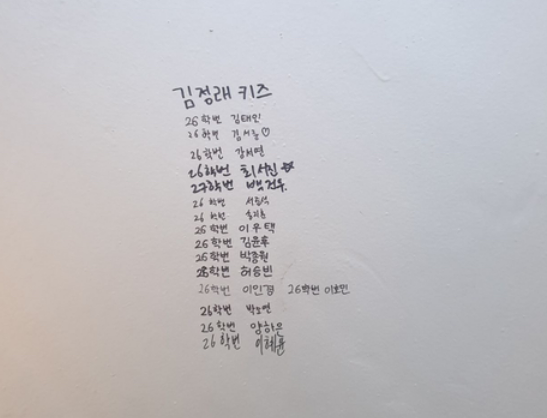 김정래 키즈
26학번 김태인
26학번 김서준♡
26학번 강서연
26학번 최서진☆
27학번 백건우
26학번 서동석
26학번
26학번 이우택
26학번 김윤후
26학번 박종원
26학번 허승빈
26학번 이인경 26학번 이호민
26학번 박소연
26학번 양하은
26학번 이혜윤